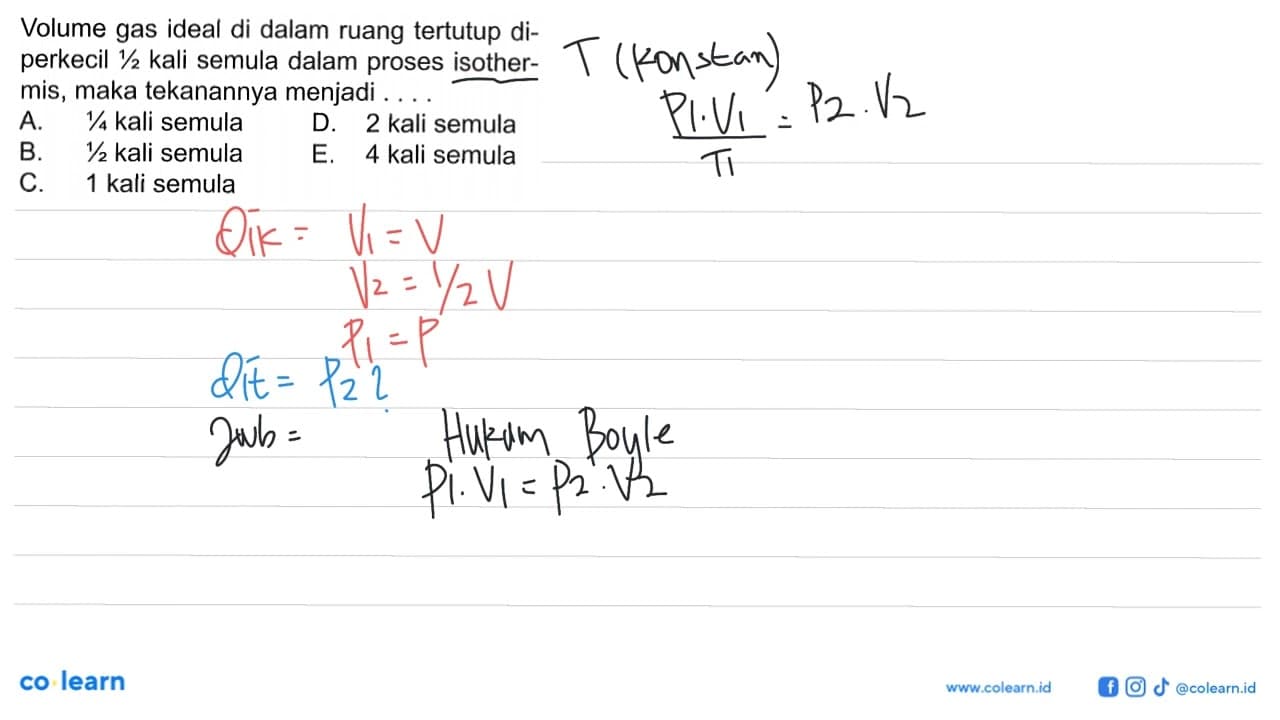 Volume gas ideal di dalam ruang tertutup di-
perkecil ½ kali semula dalam proses isother-
mis, maka tekanannya menjadi . . . .
A. ¼ kali semula D. 2 kali semula
B. ½ kali semula E. 4 kali semula
C. 1 kali semula
T (konstan)
P1.V1 = P2.V2
T1
Dik = V1 = V
V2 = 1/2 V
P1 = P
Dit = P2?
Jwb =
Hukum Boyle
P1.V1 = P2.V2
co learn
www.colearn.id
@colearn.id